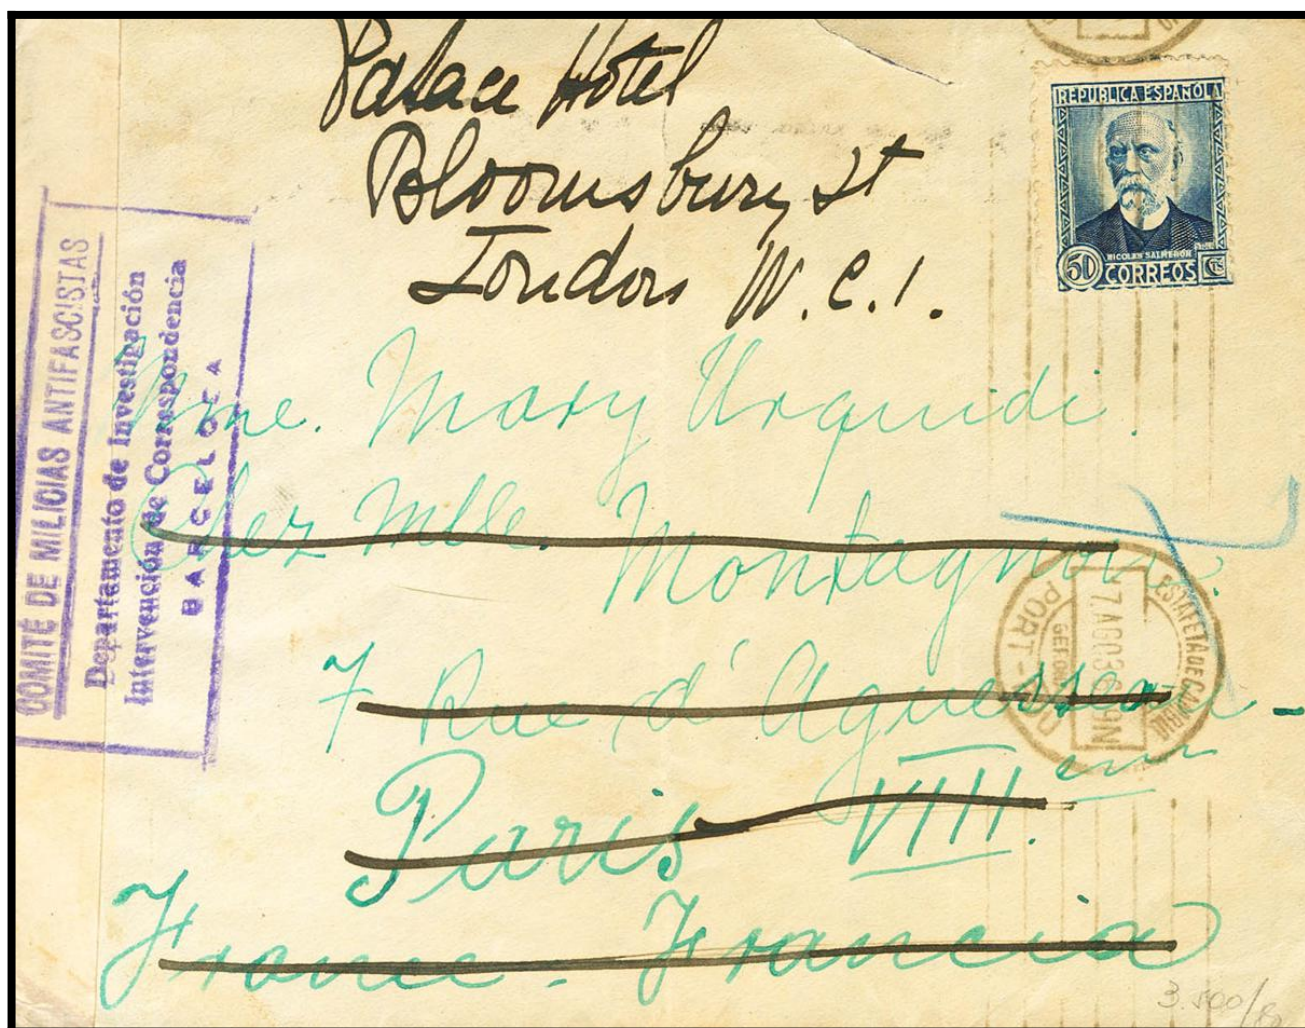 Palace Hotel
Bloomsbury St
London W.C.1.
REPUBLICA ESPAÑOLA
NICOLAS SALMERON
50 CORREOS Cts
COMITÉ DE MILICIAS ANTIFASCISTAS
Departamento de Investigación
Intervención de Correspondencia
BARCELONA
Mme. Mary Urquidi.
Chez Mlle. Montagnon.
7 Rue d'Aguesseau
Paris VIII.
France - Francia
ESTAFETA DE CAMBIO
7.AGO36
PORT-BOU
3.500/